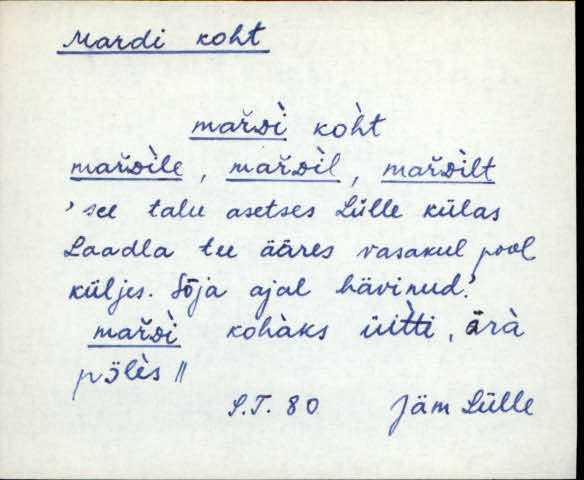 Mardi koht
mař​Dì kòht
mařDìle, mařDìl, mařDìlt
'see talu asetses Lülle külas
Laadla tee ääres vasakul pool
küljes. Sõja ajal hävinud.'
mařDì kohàks üìtti, ärà
pɔ̈lès ||
S.T. 80 Jäm Lülle